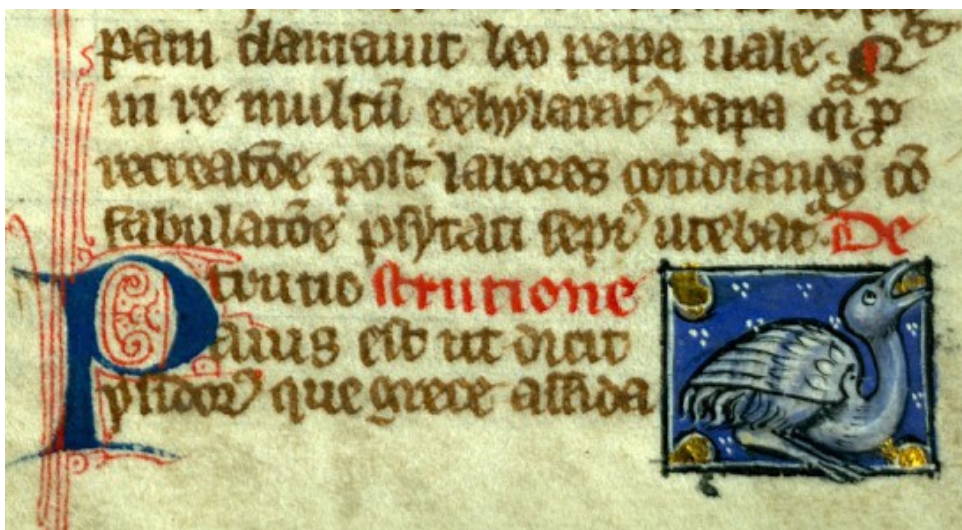 pam clamauit leo papa uale
in re multū exhylarat᷒ papa qi ꝓ
recreatōe post labores cotidianos cō
fabulatōe psytaci sepi᷒ utebat᷒ De
trutio strutione
P auis est ut dicit
ysidor᷒ que grece assida